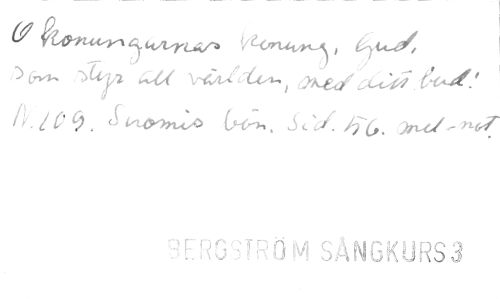 O konungarnas konung, Gud,
som styr all världen, med ditt bud!
N. 109. Suomis bön. Sid. 56. mel-not.
BERGSTRÖM SÅNGKURS 3